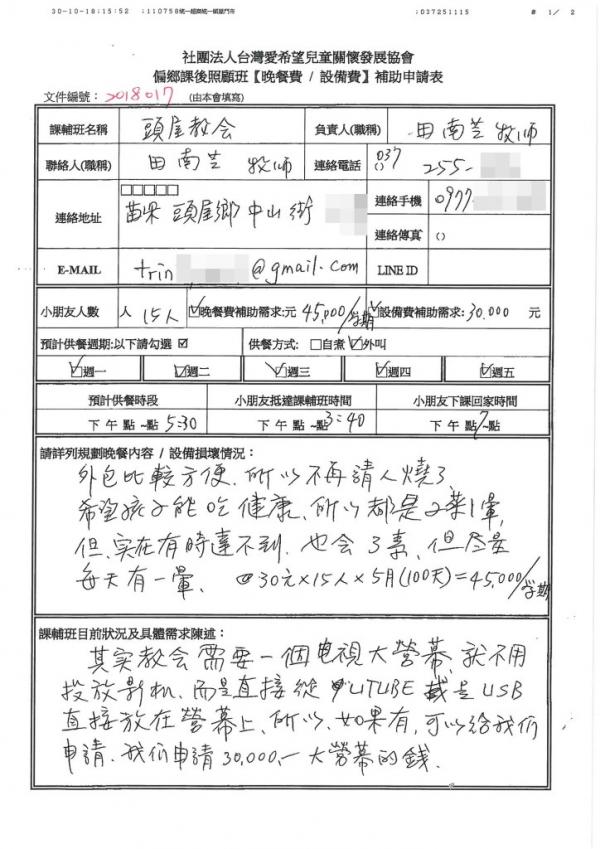 30-10-18;15:52 ;110758統一超商統一頭屋門市 ;037251115 # 1/ 2
社團法人台灣愛希望兒童關懷發展協會
偏鄉課後照顧班【晚餐費 / 設備費】補助申請表
文件編號：2018017 (由本會填寫)
課輔班名稱 頭屋教会 負責人(職稱) 田南芝 牧师
聯絡人(職稱) 田南芝 牧师 連絡電話 (037) 255-
連絡地址 苗栗 頭屋鄉 中山街 連絡手機 0977-
連絡傳真 ()
E-MAIL trin @gmail.com LINE ID
小朋友人數 人 15人 ☑晚餐費補助需求:元 45,000/学期 ☑設備費補助需求:30,000 元
預計供餐週期:以下請勾選 ☑ 供餐方式: □自煮 ☑外叫
☑週一 ☑週二 ☑週三 ☑週四 ☑週五
預計供餐時段 小朋友抵達課輔班時間 小朋友下課回家時間
下午 點~點 5:30 下午 點~點 3:40 下午 點~點 7
請詳列規劃晚餐內容 / 設備損壞情況：
外包比較方便、所以不再請人燒了、
希望孩子能吃健康、所以都是2菜1葷,
但、实在有時達不到、也会3素、但尽量
每天有一葷、 30元×15人×5月(100天)=45,000/学期
課輔班目前狀況及具體需求陳述：
其实教会需要一個电視大螢幕、就不用
投放影机、而是直接從 YUTUBE 或是USB
直接放在螢幕上、所以、如果有、可以給我们
申請、我们申請30,000,一大螢幕的錢、